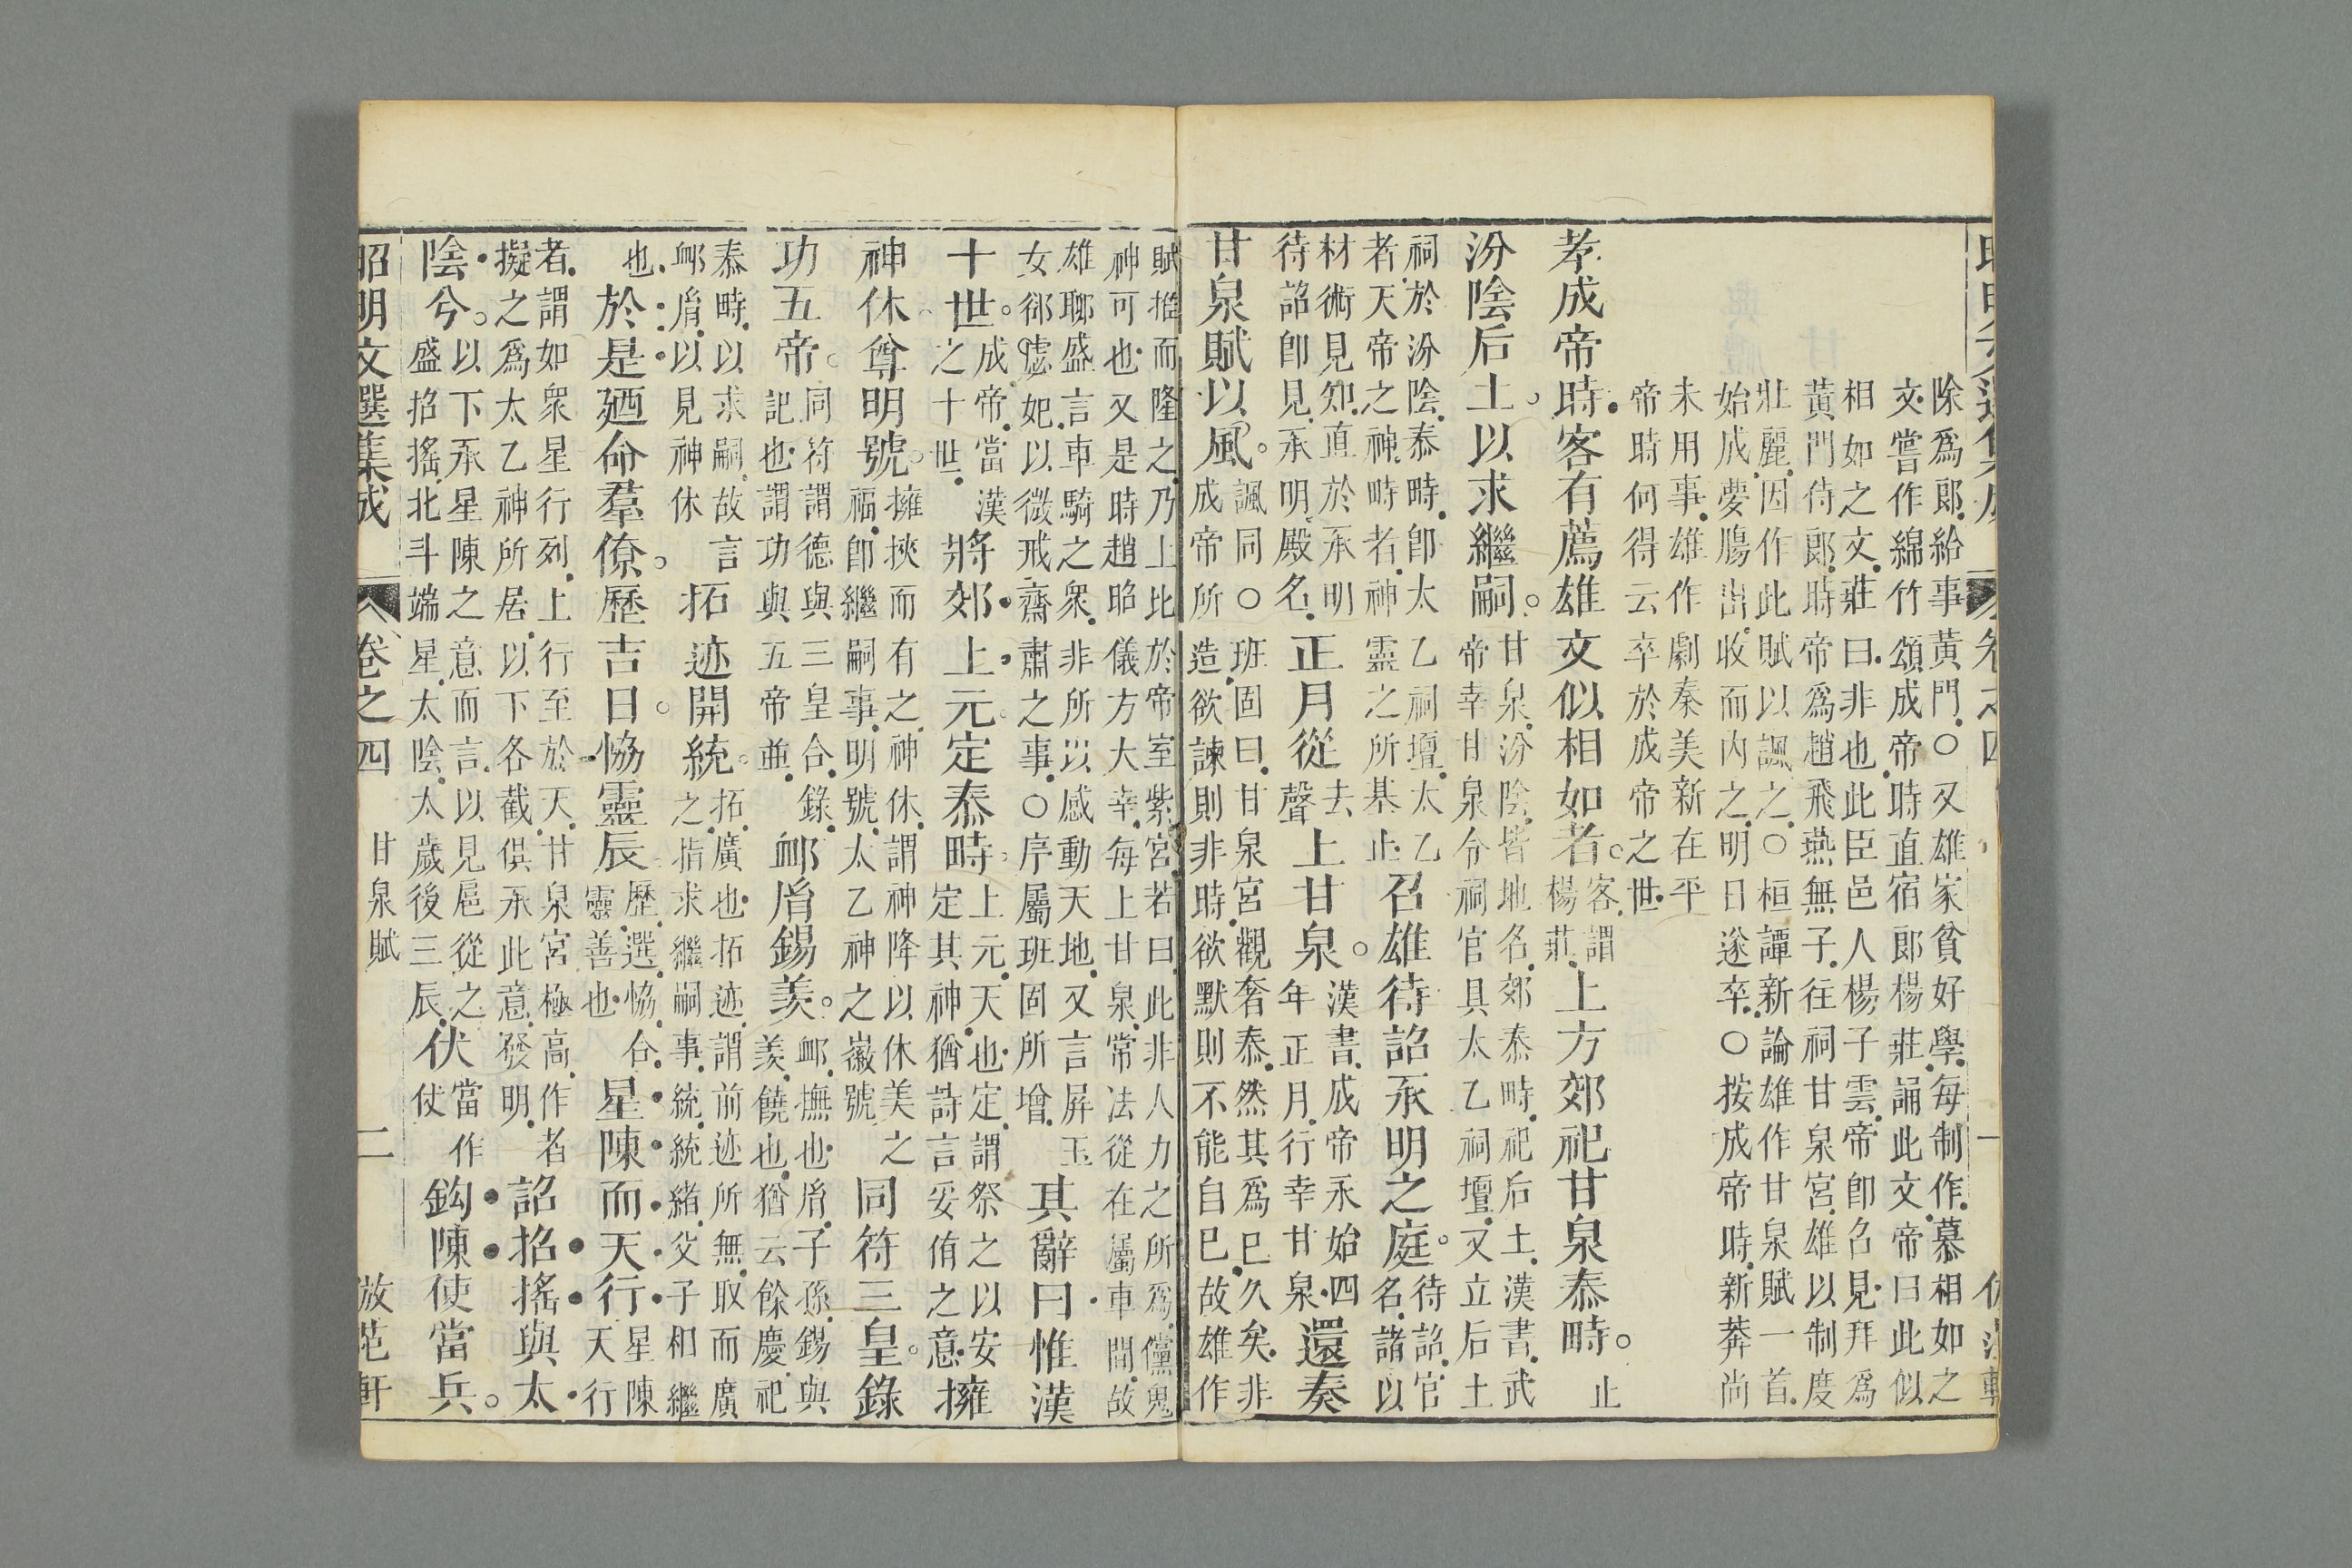 除爲郎給事黃門○又雄家貧好學每制作慕相如之
文嘗作綿竹頌成帝時直宿郎楊莊誦此文帝曰此似
相如之文莊曰非也此臣邑人楊子雲帝卽名見拜爲
黃門侍郎時帝爲趙飛燕無子往祠甘泉宮雄以制度
壯麗因作此賦以諷之○桓譚新論雄作甘泉賦一首
始成夢膓出收而內之明日遂卒○按成帝時新莽尚
未用事雄作劇秦美新在平
帝時何得云卒於成帝之世
孝成帝時客有薦雄文似相如者。客謂楊莊上方郊祀甘泉泰畤。止
汾陰后土以求繼嗣。甘泉汾陰皆地名郊泰畤祀后土漢書武
帝幸甘泉令祠官具太乙祠壇又立后土
祠於汾陰泰畤卽太乙祠壇太乙
者天帝之神畤者神靈之所基止召雄待詔承明之庭。待詔官
名諸以
材術見知直於承明
待詔卽見承明殿名正月從去聲上甘泉。漢書成帝永始四
年正月行幸甘泉還奏
甘泉賦以風。諷同○班固曰甘泉宮觀奢泰然其爲已久矣非
成帝所造欲諫則非時欲默則不能自已故雄作
賦推而隆之乃上比於帝室紫宮若曰此非人力之所爲儻鬼
神可也又是時趙昭儀方大幸每上甘泉常法從在屬車間故
雄聊盛言車騎之衆非所以感動天地又言屏玉
女卻虙妃以微戒齋肅之事○序屬班固所增其辭曰惟漢
十世。成帝當漢
之十世將郊上元定泰畤。上元天也定謂祭之以安
定其神猶詩言妥侑之意擁
神休。尊明號。擁挾而有之神休謂神降以休美之
福卽繼嗣事明號太乙神之徽號同符三皇。錄
功五帝。同符謂德與三皇合錄
記也謂功與五帝並卹胤錫羨。卹撫也胤子孫錫與
羨饒也猶云餘慶祀
泰畤以求嗣故言
卹胤以見神休拓迹開統。拓廣也拓迹謂前迹所無取而廣
之指求繼嗣事統統緒父子相繼
也於是廼命羣僚。歷吉日。恊靈辰。歷選恊合
靈善也星陳而天行星陳
天行
者謂如衆星行列上行至於天甘泉宮極高作者
擬之爲太乙神所居以下各截俱承此意發明詔招搖與太
陰兮。以下承星陳之意而言以見扈從之
盛招搖北斗端星太陰太歲後三辰伏當作
仗鈎陳使當兵。
昭明文選集成 卷之四 甘泉賦 二 軒